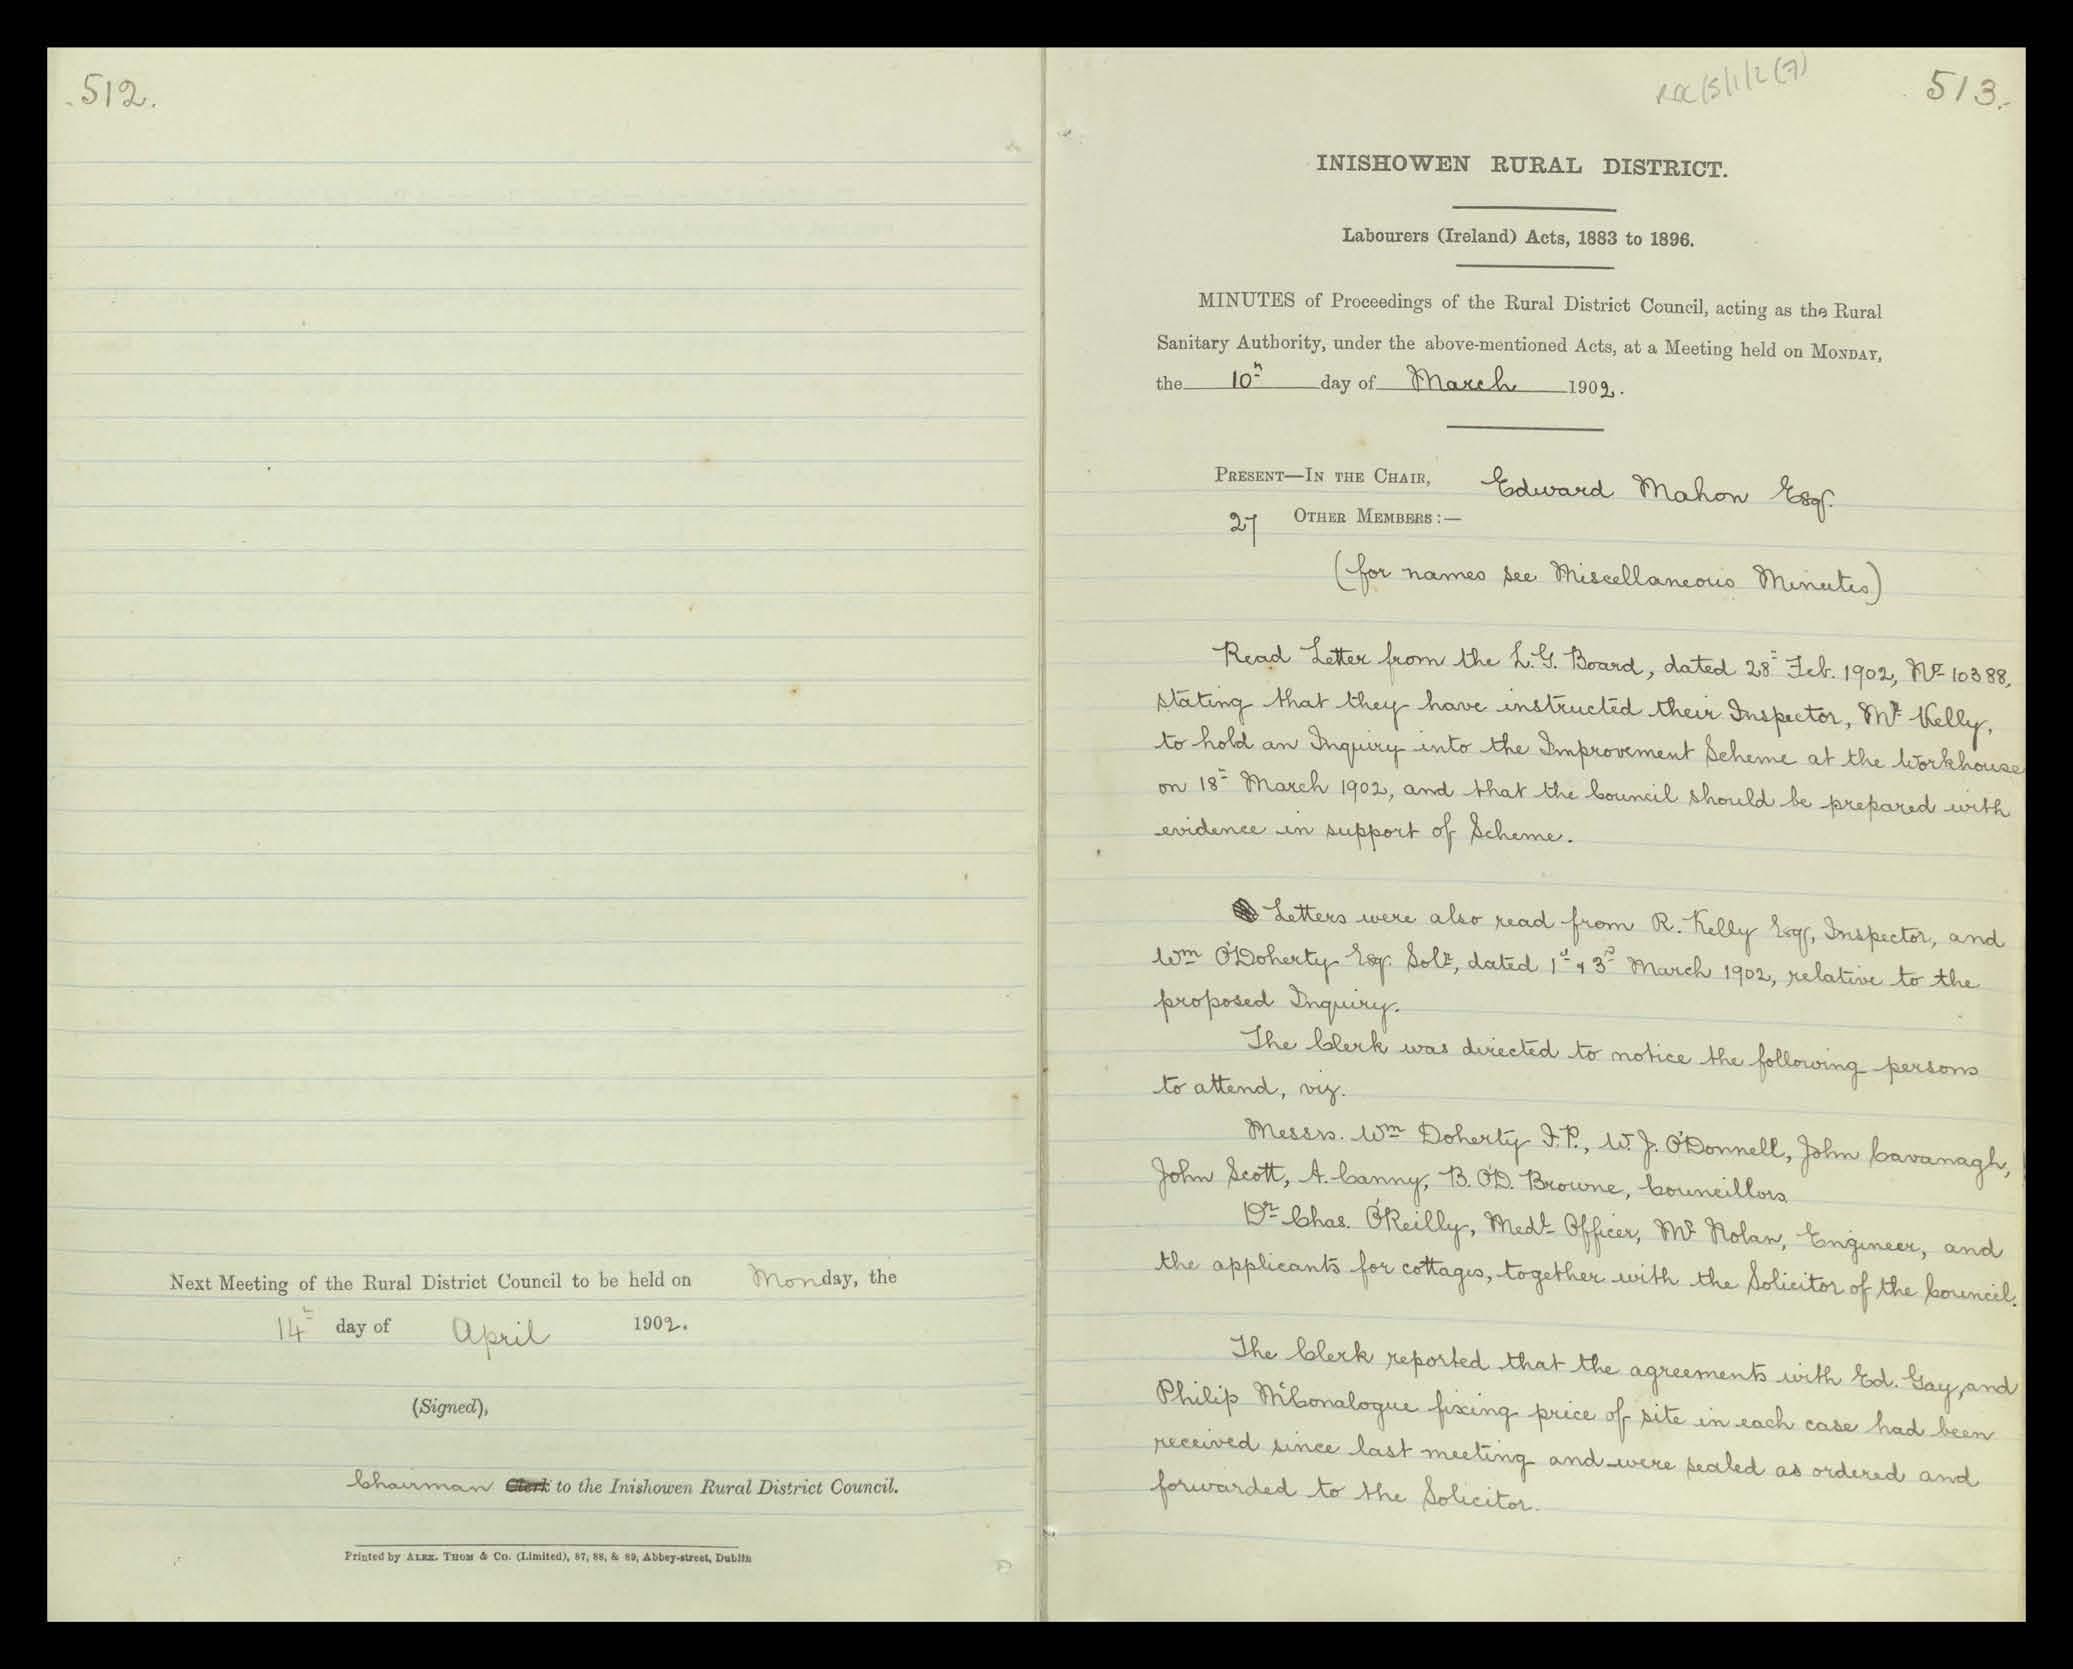 512.
Next Meeting of the Rural District Council to be held on Monday, the
14th day of April 1902.
(Signed),
Chairman Clerk to the Inishowen Rural District Council.
Printed by ALEX. THOM & Co. (Limited), 87, 88, & 89, Abbey-street, Dublin
RDC/5/1/2(7)
513.
INISHOWEN RURAL DISTRICT.
Labourers (Ireland) Acts, 1883 to 1896.
MINUTES of Proceedings of the Rural District Council, acting as the Rural
Sanitary Authority, under the above-mentioned Acts, at a Meeting held on MONDAY,
the 10th day of March 1902.
PRESENT—IN THE CHAIR, Edward Mahon Esq.
27 OTHER MEMBERS:—
(for names see Miscellaneous Minutes)
Read Letter from the L.G. Board, dated 28th Feb. 1902, No 10388,
stating that they have instructed their Inspector, Mr Kelly,
to hold an Inquiry into the Improvement Scheme at the Workhouse
on 18th March 1902, and that the Council should be prepared with
evidence in support of Scheme.
Letters were also read from R. Kelly Esq, Inspector, and
Wm O'Doherty Esq. Solr, dated 1st & 3rd March 1902, relative to the
proposed Inquiry.
The Clerk was directed to notice the following persons
to attend, viz.
Messrs. Wm Doherty J.P., W. J. O'Donnell, John Cavanagh,
John Scott, A. Canny, B. O'D. Browne, Councillors
Dr Chas. O'Reilly, Medl Officer, Mr Nolan, Engineer, and
the applicants for cottages, together with the Solicitor of the Council.
The Clerk reported that the agreements with Ed. Gay, and
Philip McConalogue fixing price of site in each case had been
received since last meeting and were sealed as ordered and
forwarded to the Solicitor.